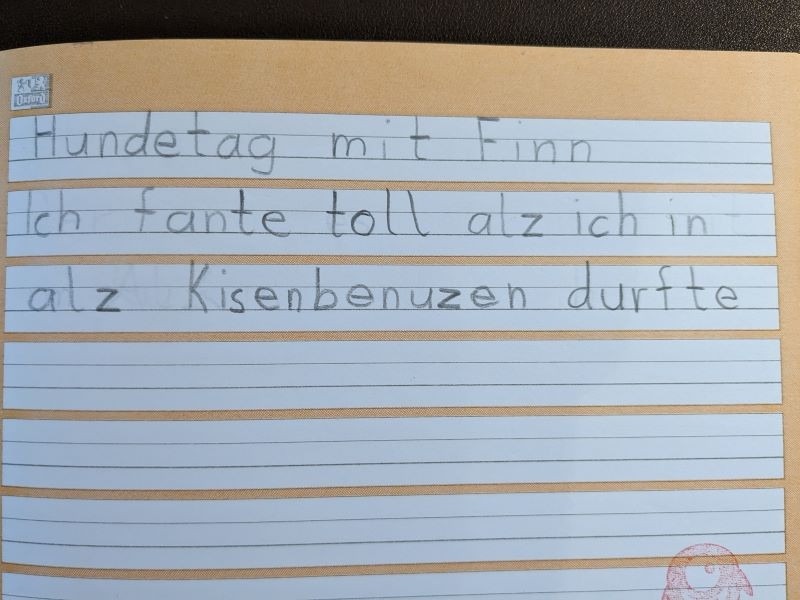 Oxford
Hundetag mit Finn
Ich fante toll alz ich in
alz Kisenbenuzen durfte